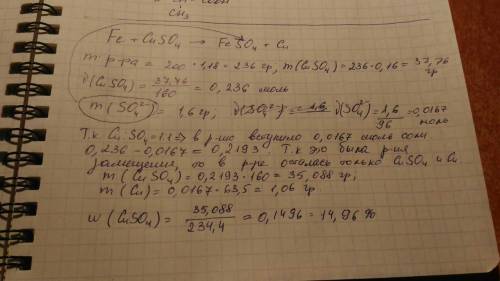 CH₃
Fe + CuSO₄ → FeSO₄ + Cu
m р-ра = 200 · 1,18 = 236 гр, m(CuSO₄) = 236 · 0,16 = 37,76 гр
ν(CuSO₄) = 37,76 / 160 = 0,236 моль
m(SO₄²⁻) = 1,6 гр, ν(SO₄²⁻) = 1,6 ν(SO₄²⁻) = 1,6 / 96 = 0,0167 моль
Т.к. Cu SO₄ = 1:1 ⇒ в р-ию вступило 0,0167 моль соли
0,236 - 0,0167 = 0,2193. Т.к это была р-ия
замещения, то в р-ре осталась только CuSO₄ и Cu
m(CuSO₄) = 0,2193 · 160 = 35,088 гр;
m(Cu) = 0,0167 · 63,5 = 1,06 гр
w(CuSO₄) = 35,088 / 234,4 = 0,1496 = 14,96 %